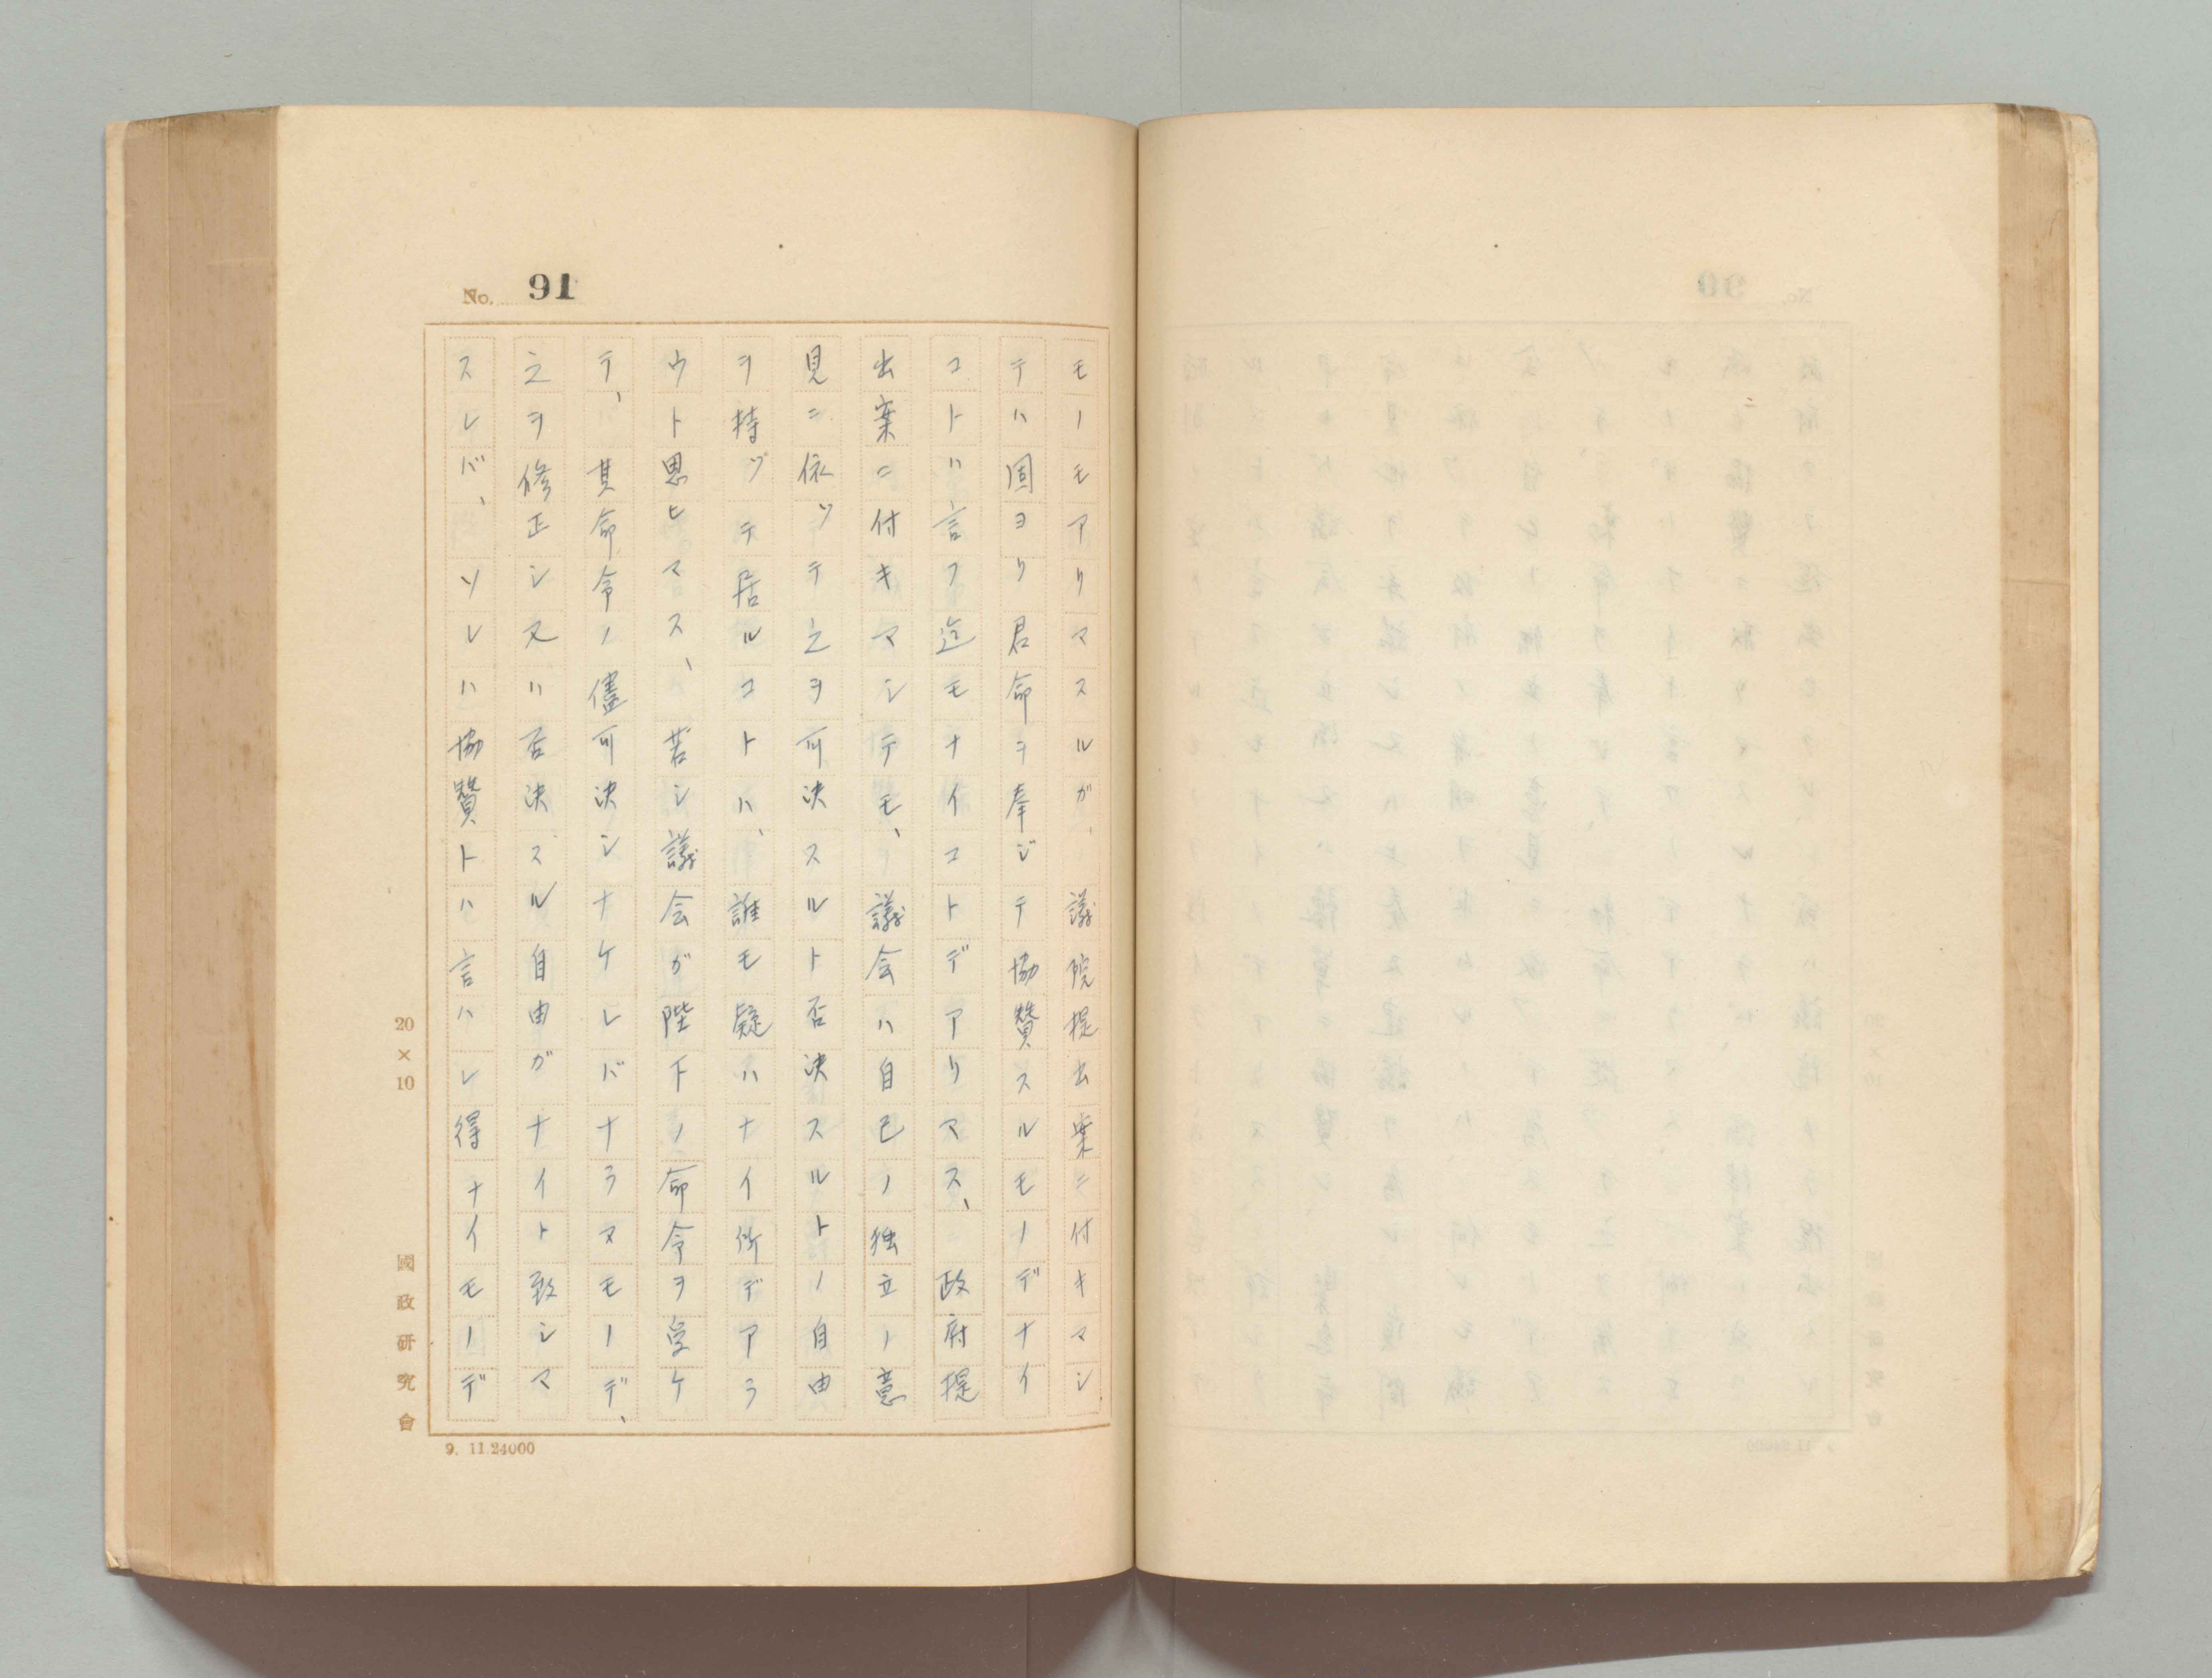 No. 91
モノモアリマスルガ、議院提出案ニ付キマシ
テハ固ヨリ君命ヲ奉ジテ協賛スルモノデナイ
コトハ言フ迄モナイコトデアリマス、政府提
出案ニ付キマシテモ、議会ハ自己ノ独立ノ意
見ニ依ツテ之ヲ可決スルト否決スルトノ自由
ヲ持ツテ居ルコトハ、誰モ疑ハナイ所デアラ
ウト思ヒマス、若シ議会ガ陛下ノ命令ヲ受ケ
テ、其命令ノ儘可決シナケレバナラヌモノデ、
之ヲ修正シ又ハ否決スル自由ガナイト致シマ
スレバ、ソレハ協賛トハ言ハレ得ナイモノデ
20×10
國政研究會
9. 11.24000